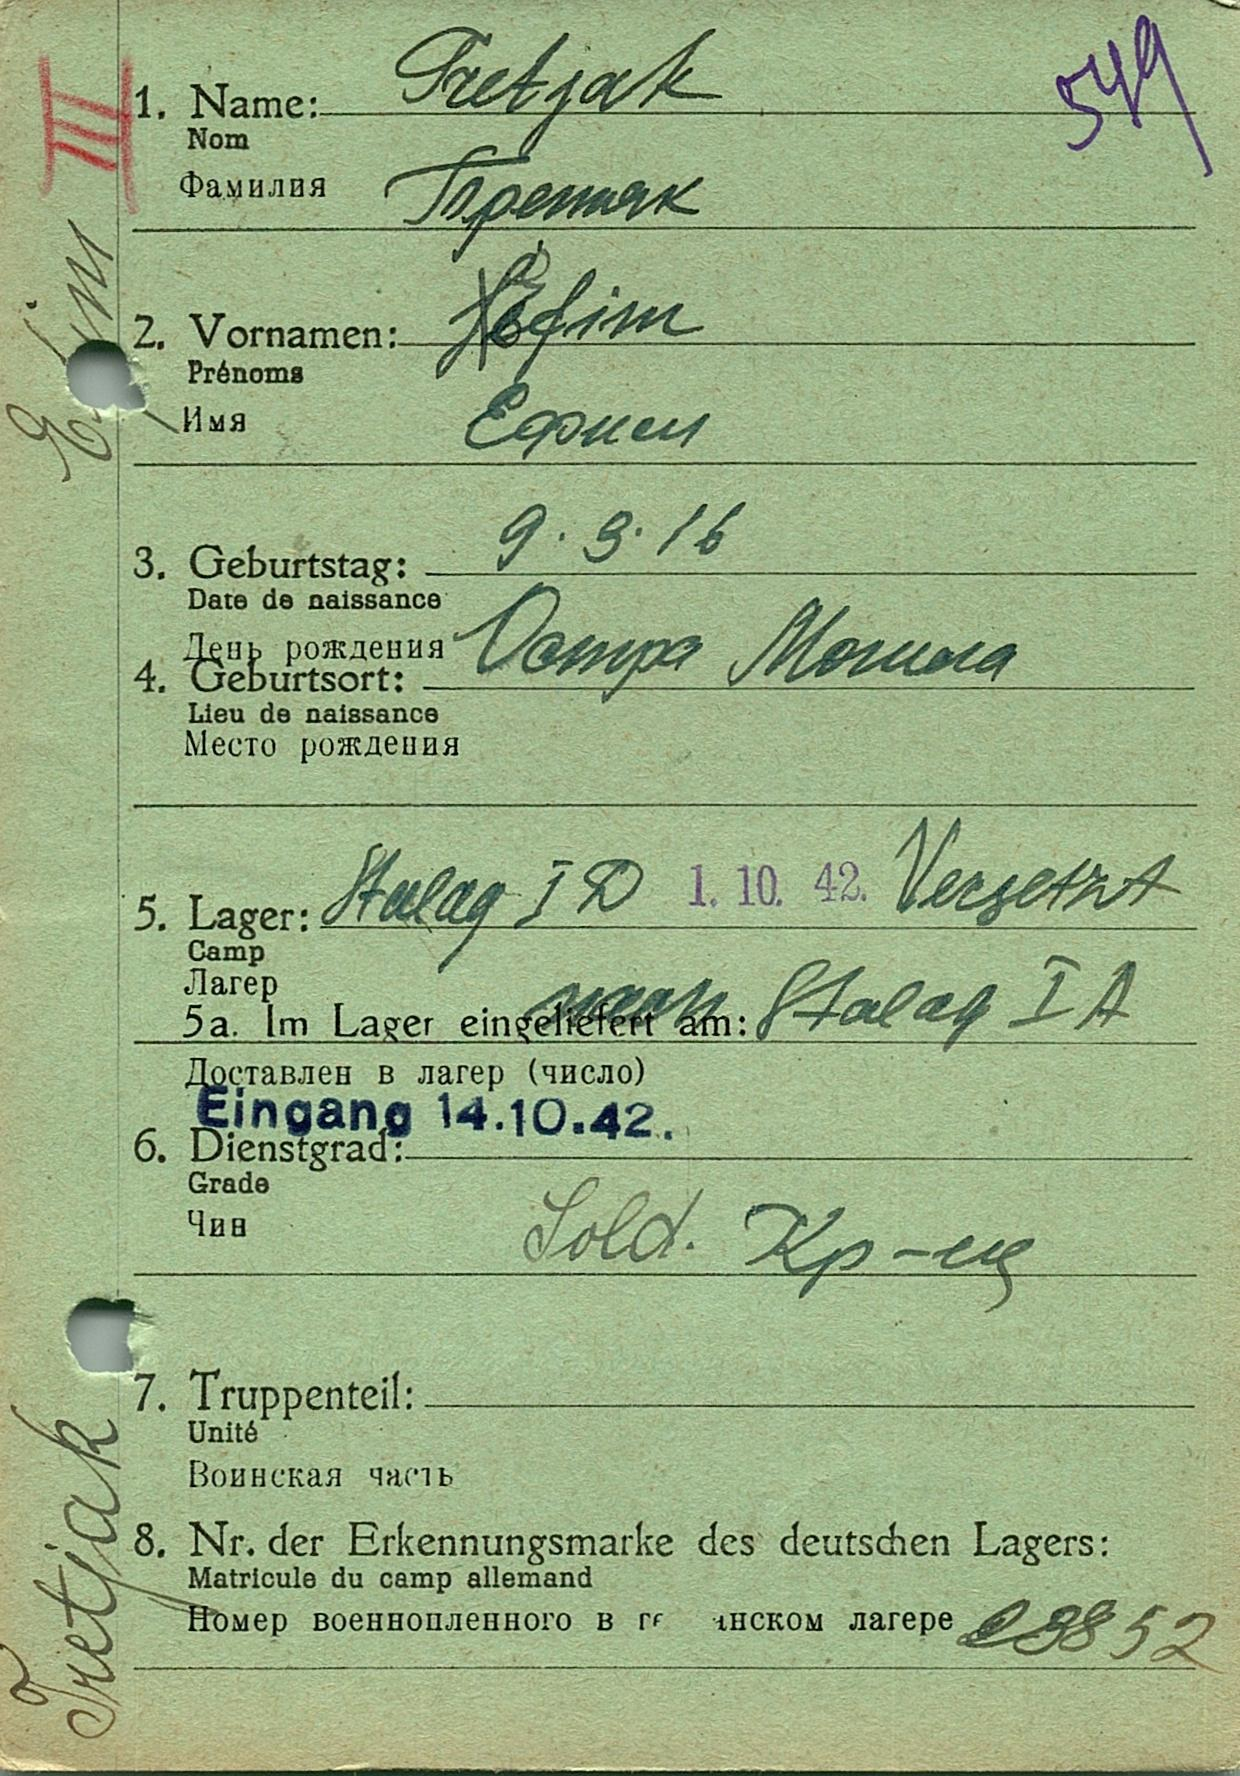 III
549
1. Name: Tretjak
Nom
Фамилия Третяк
2. Vornamen: Efim
Prénoms
Имя Ефим
3. Geburtstag: 9.3.16
Date de naissance
День рождения
4. Geburtsort: Остра Могила
Lieu de naissance
Место рождения
5. Lager: Stalag I D 1. 10. 42. Versetzt
Camp
Лагер nach Stalag I A
5a. Im Lager eingeliefert am:
Доставлен в лагер (число)
Eingang 14.10.42.
6. Dienstgrad:
Grade
Чин Sold. Кр-ец
7. Truppenteil:
Unité
Воинская часть
8. Nr. der Erkennungsmarke des deutschen Lagers:
Matricule du camp allemand
Номер военнопленного в ге нском лагере 8852
Tretjak Efim